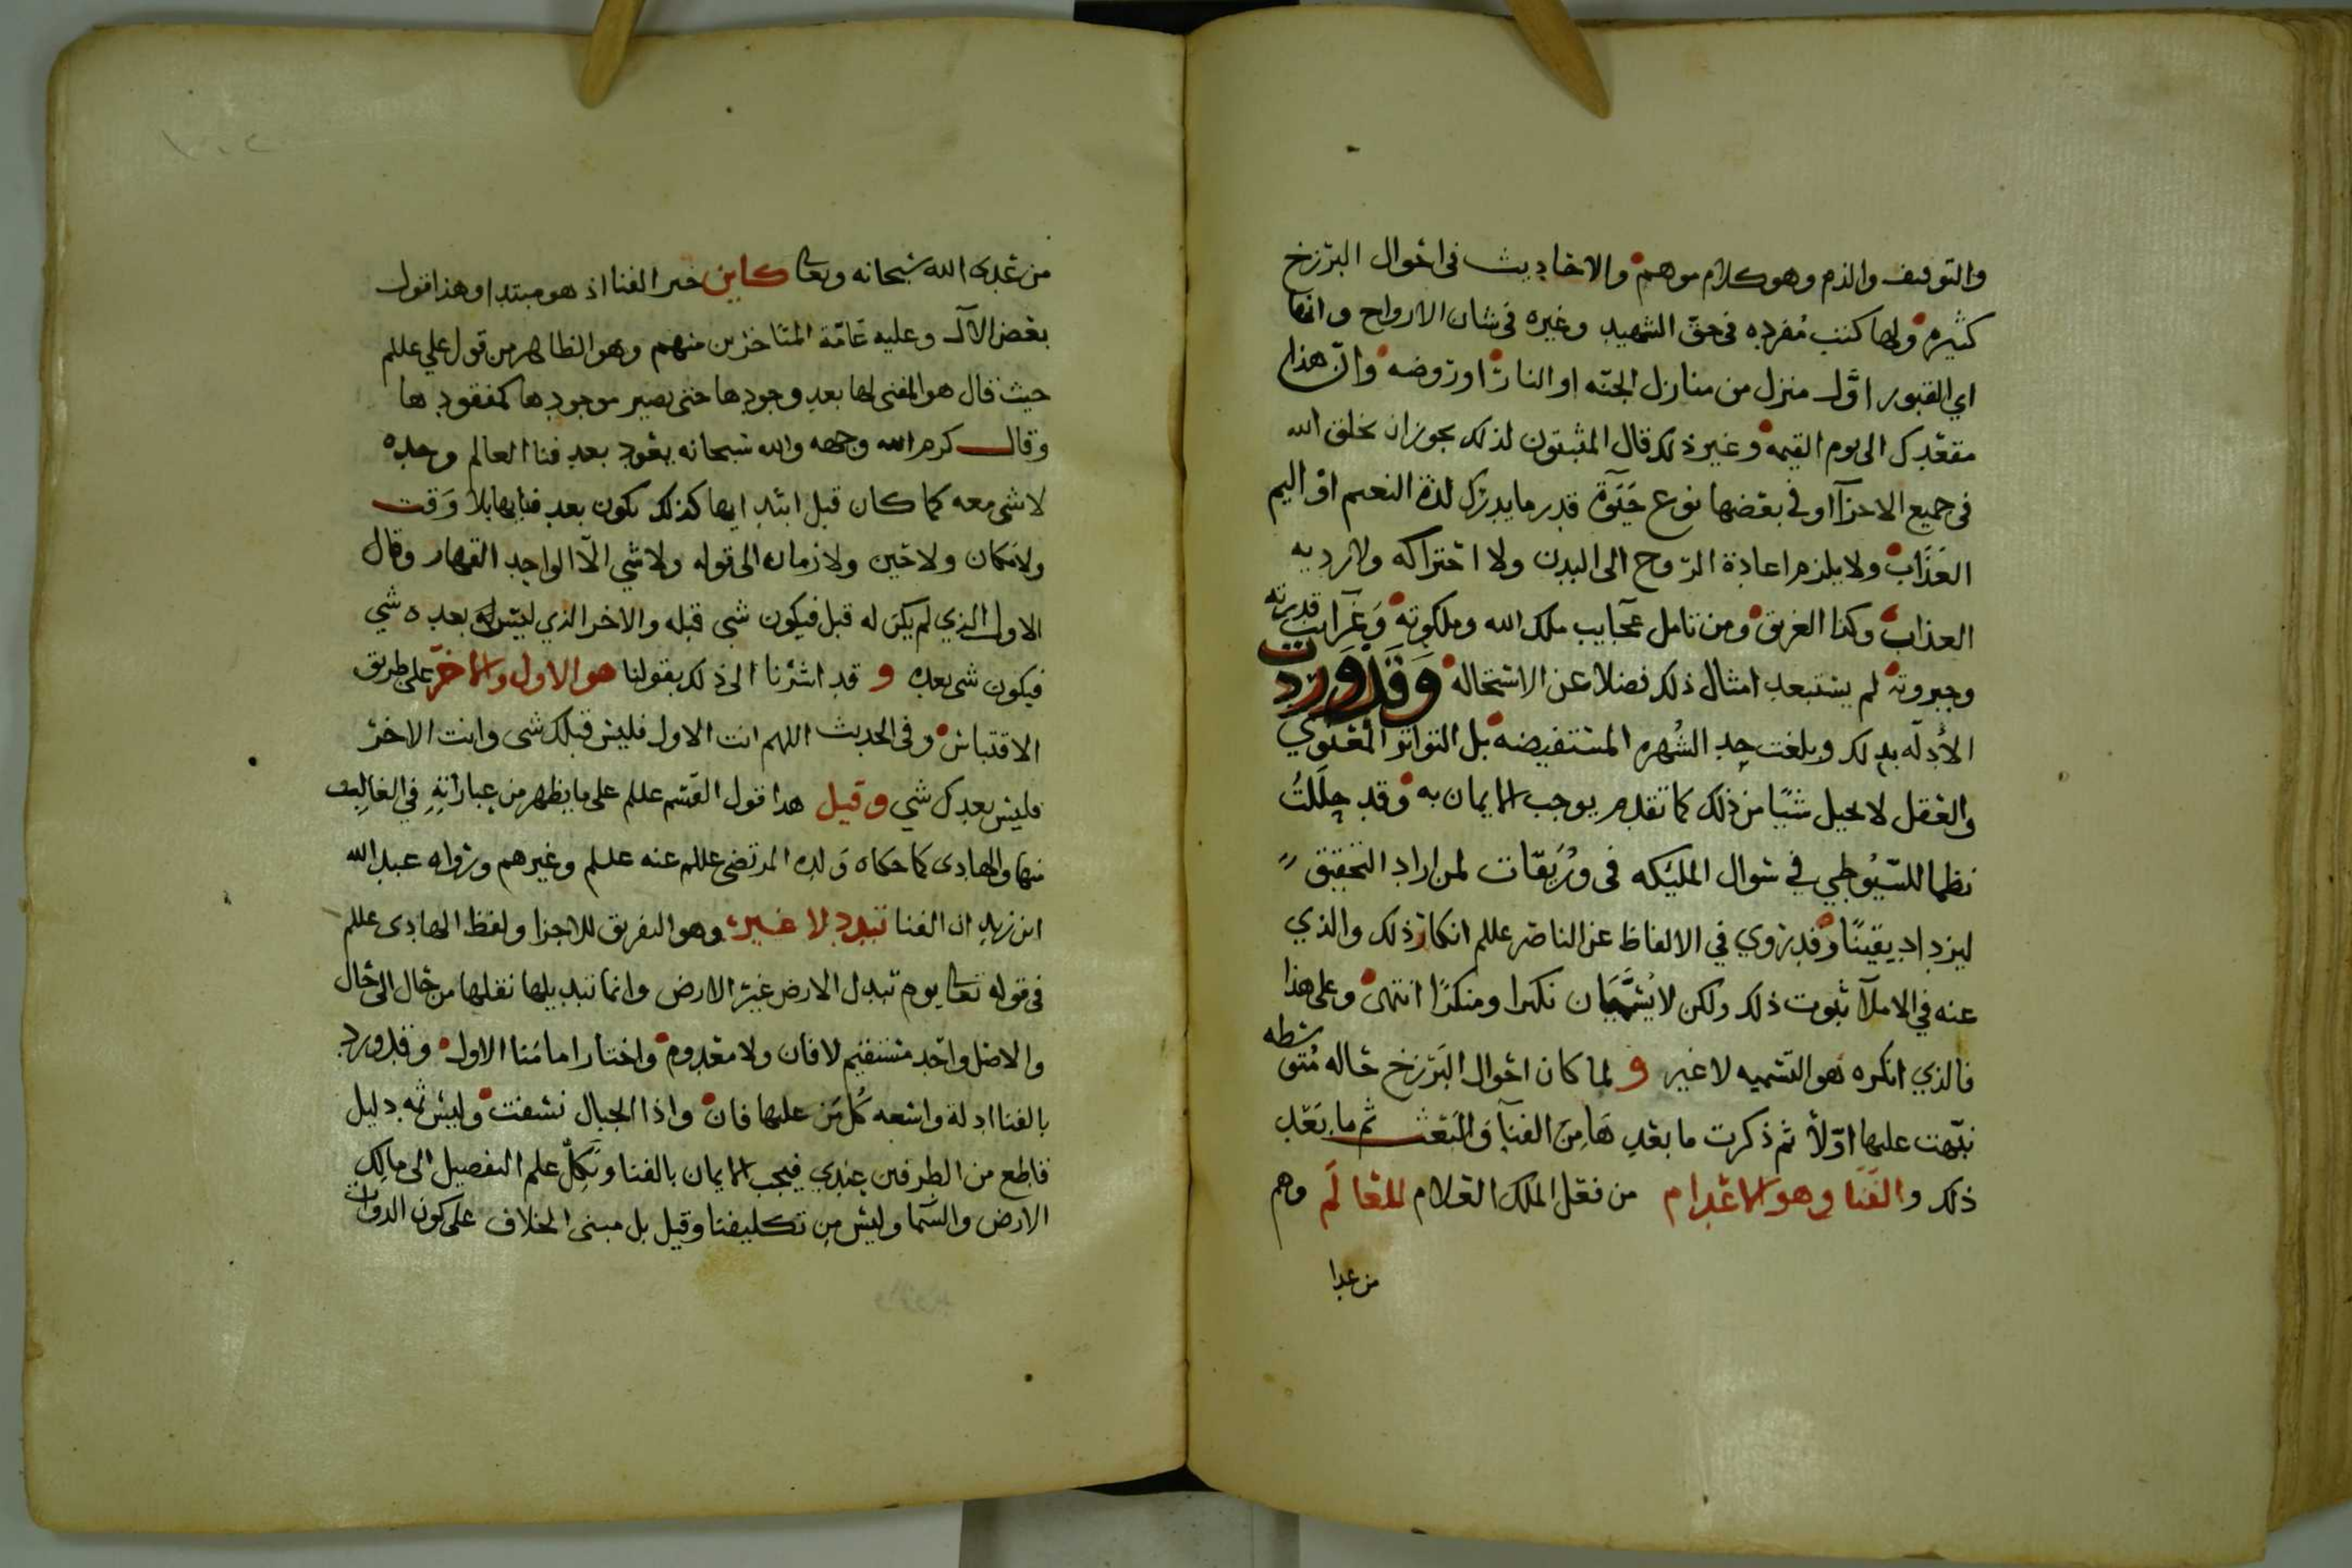 والتوقيف والذم وهو كلام موهم والاحاديث في احوال البرزخ
كثيره ولها كتب مفرده في حق الشهيد وغيره في شان الارواح وانها
اي القبور اول منزل من منازل الجنه او النار او روضه وان هذا
مقعدك الى يوم القيمه وغير ذلك قال المثبتون لذلك يجوز ان يخلق الله
في جميع الاجزآ او في بعضها نوع حَيَوة قدر ما يدرك لذة النعيم او اليم
العَذَاب ولا يلزم اعادة الروح الى البدن ولا احتراكه ولا رد به
العذاب وكذا الغريق ومن تامل عجايب ملك الله وملكوته وغرايب قدرته
وجبروته لم يستبعد امثال ذلك فضلا عن الاستحاله وَقَد وَرَدت
الأدلّه بذلك وبلغت حد الشُهره المستفيضه بل التواتر المعنوي
والعقل لا يحيل شيًا من ذلك كما تقدم يوجب الايمان به وقد حللتُ
نظما للسّيُوطي في سوال المليكه في وُرَيقات لمن اراد التحقيق
ليزداد يقينًا وقد روي في الالفاظ عن الناصر عللم انكار ذلك والذي
عنه في الاملآ ثبوت ذلك ولكن لا يُسَمَّيَان نكيرا ومنكرًا انتهى وعلى هذا
فالذي انكره هو التسميه لا غير و لما كان احوال البَرزخ حاله مُتوسطه
نبّهت عليها اوّلًا ثم ذكرت ما بعدهَا مِن الفنآ وَالبَعث ثم ما بَعد
ذلك والفَنَا وهو الاعدام من فعل الملك العلام للعَالَم وهم
من عدا
من عدى الله سبحانه وتعالى كاين خبر الفنا اذ هو مبتدا وهذا قول
بعض الآل وعليه عامّة المتاخرين منهم وهو الظاهر من قول علي عللم
حيث قال هو المفني لها بعد وجودها حتى يصير موجودها كمفقودها
وقال كرم الله وجهه والله سبحانه يعود بعد فنا العالم وحده
لا شي معه كما كان قبل ابتدايها كذلك يكون بعد فنايها بلا وَقت
ولا مكان ولا حين ولا زمان الى قوله ولا شي الّا الواحد القهار وقال
الاول الذي لم يكن له قبل فيكون شي قبله والاخر الذي ليس له بعده شي
فيكون شي بعده و قد اشرنا الى ذلك بقولنا هو الاول والاخر على طريق
الاقتباس وفي الحديث اللهم انت الاول فليس قبلك شي وانت الاخر
فليس بعدك شي وقيل هذا قول القسم عللم على ما يظهر من عباراتهِ في الغالب
منها والهادي كما حكاه وَلده المرتضى عللم عنه عللم وغيرهم ورواه عبدالله
ابن زيد ان الفنا تبدد لا غير وهو التفريق للاجزا ولفظ الهادي عللم
في قوله تعالى يوم تبدل الارض غير الارض وانما تبديلها نقلها من حال الى حال
والاصل واحد مستقيم لا فان ولا معدوم واختار امامنا الاول وقد ورد
بالفنا ادلة واسعه كُل مَن عليها فان واذا الجبال نسفت وليس ثمه دليل
قاطع من الطرفين عِندي فيجب الايمان بالفنا ونَكِلُ علم التفصيل الى مالك
الارض والسّما وليس مِن تكليفنا وقيل بل مبنى الخلاف على كون الدوات